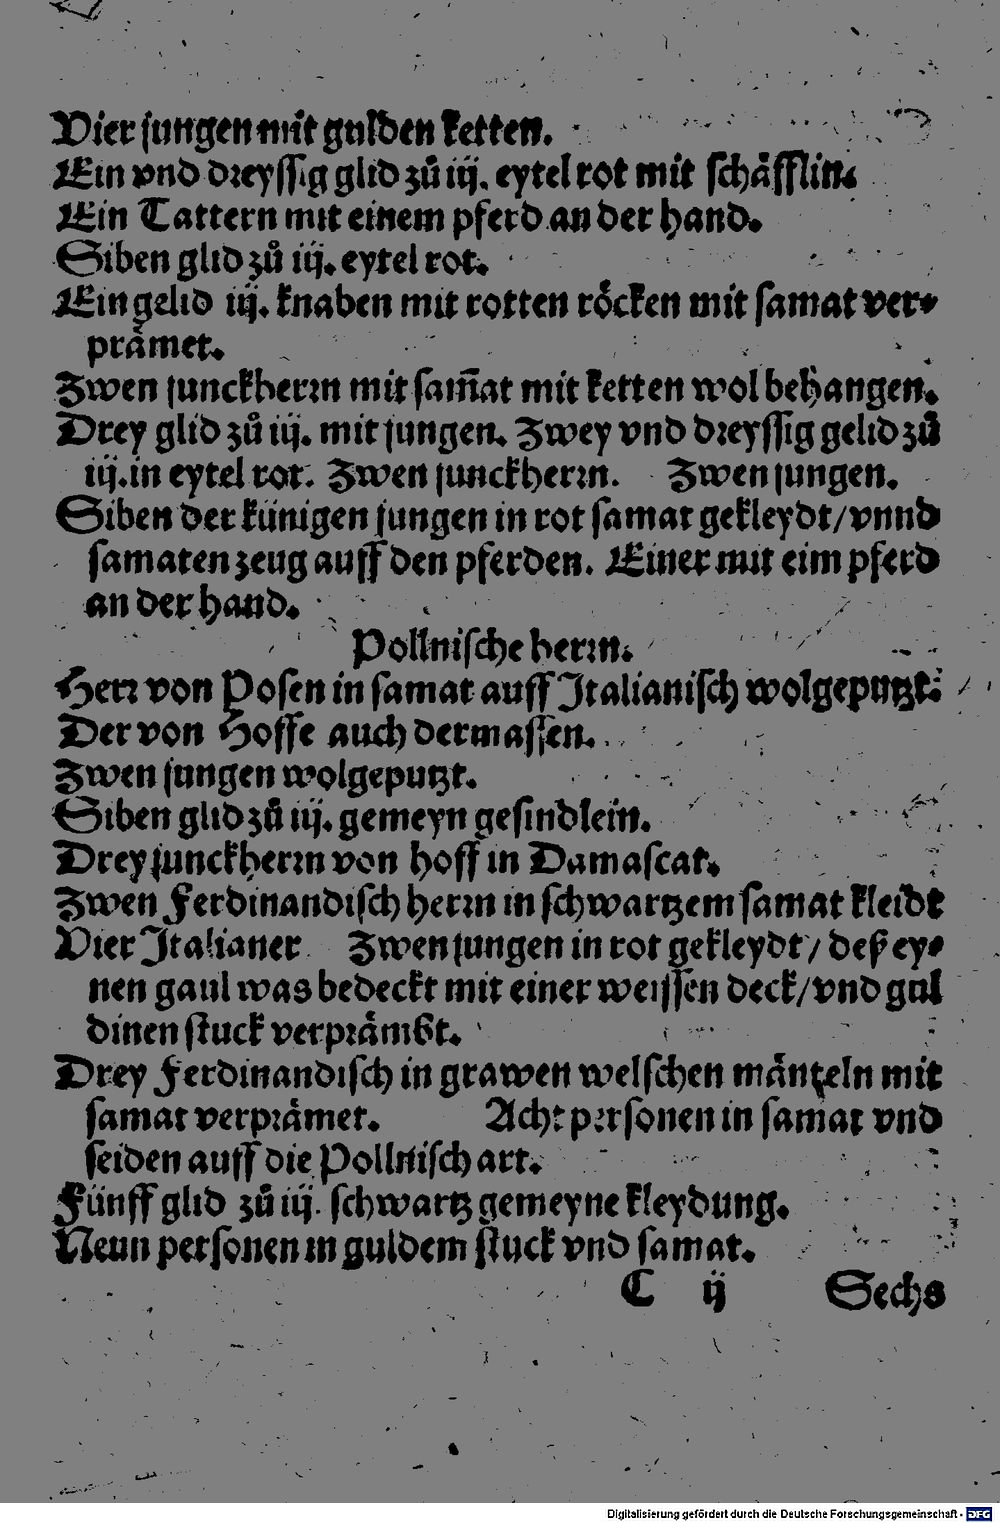 Vier jungen mit gulden ketten.
Ein vnd dreyssig glid zů iij. eytel rot mit schäfflin.
Ein Tattern mit einem pferd an der hand.
Siben glid zů iij. eytel rot.
Ein gelid iij. knaben mit rotten röcken mit samat ver⸗
prämet.
Zwen junckherrn mit sam̄at mit ketten wol behangen.
Drey glid zů iij. mit jungen. Zwey vnd dreyssig gelid zů
iij. in eytel rot. Zwen junckherrn. Zwen jungen.
Siben der künigen jungen in rot samat gekleydt/vnnd
samaten zeug auff den pferden. Einer mit eim pferd
an der hand.
Pollnische herrn.
Herr von Posen in samat auff Italianisch wolgeputzt.
Der von Hoffe auch dermassen.
Zwen jungen wolgeputzt.
Siben glid zů iij. gemeyn gesindlein.
Drey junckherrn von hoff in Damascat.
Zwen Ferdinandisch herrn in schwartzem samat kleidt
Vier Italianer Zwen jungen in rot gekleydt/ deß ey⸗
nen gaul was bedeckt mit einer weissen deck/vnd gul
dinen stuck verprämbt.
Drey Ferdinandisch in grawen welschen mänteln mit
samat verprämet. Acht personen in samat vnd
seiden auff die Pollnisch art.
Fünff glid zů iij. schwartz gemeyne kleydung.
Neun personen in guldem stuck vnd samat.
C ij Sechs
Digitalisierung gefördert durch die Deutsche Forschungsgemeinschaft - DFG